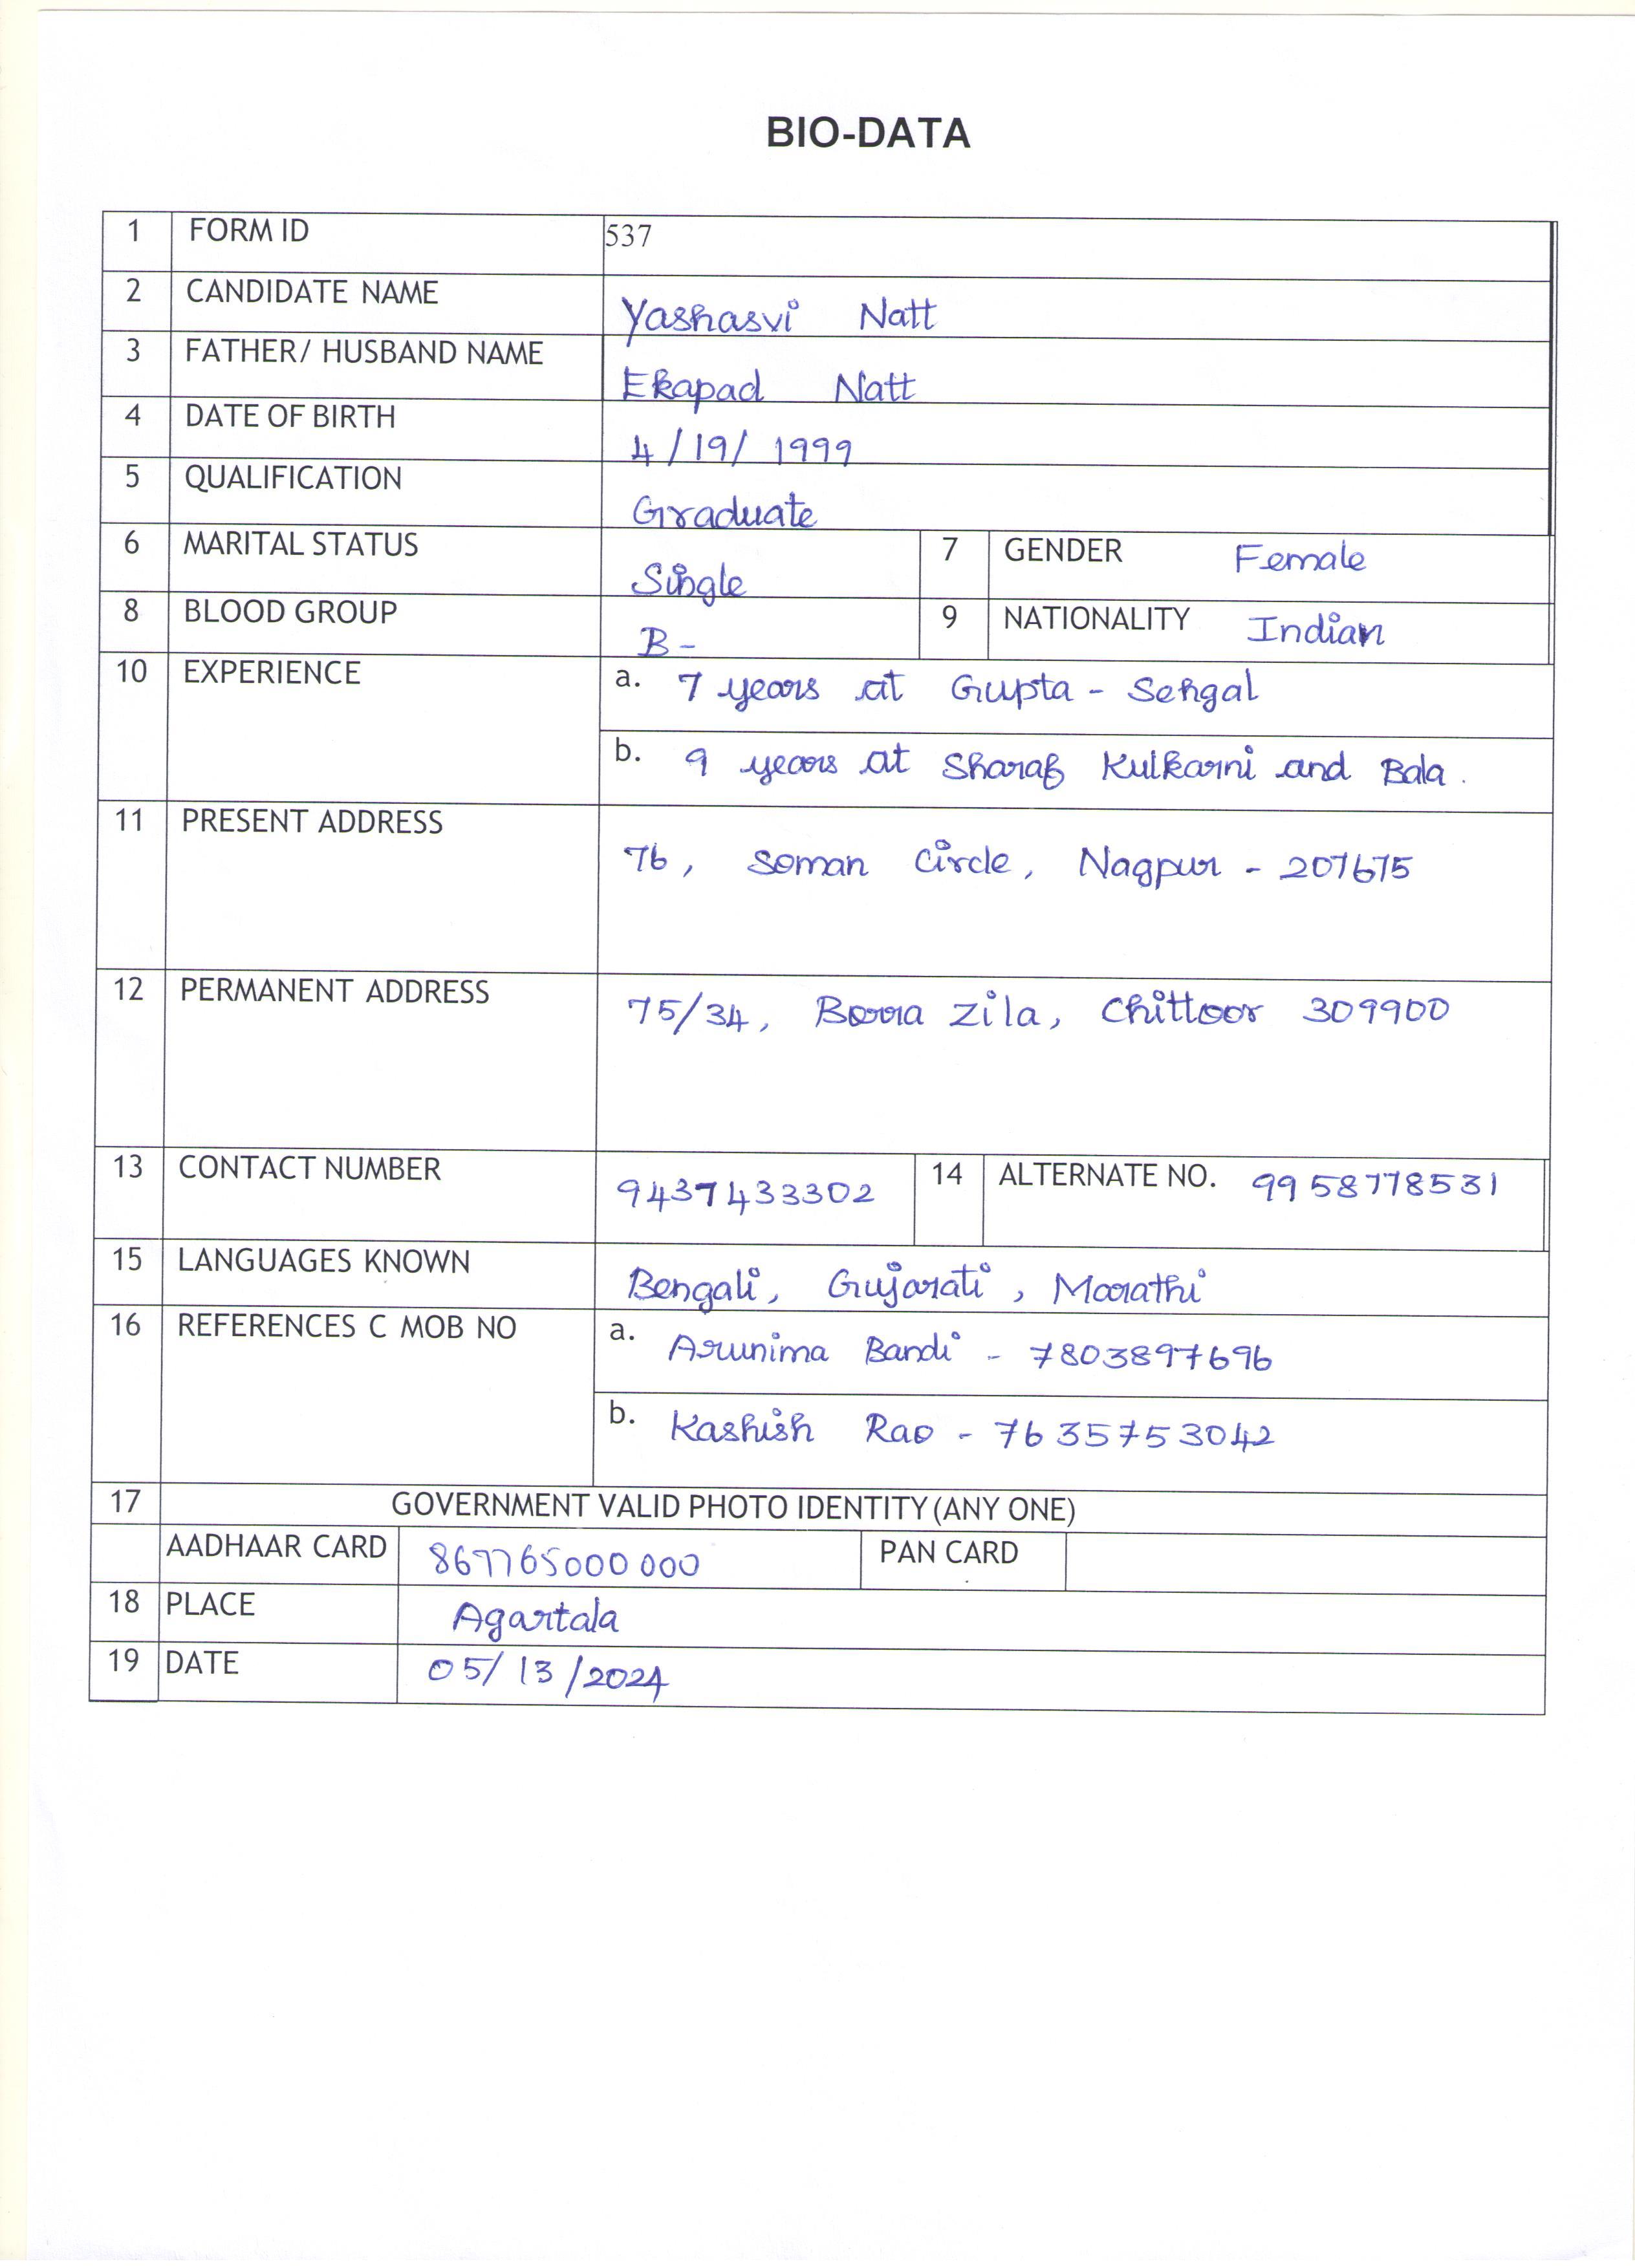 BIO-DATA
1 FORM ID 537
2 CANDIDATE NAME Yashasvi Natt
3 FATHER/ HUSBAND NAME Ekapad Natt
4 DATE OF BIRTH 4/19/ 1999
5 QUALIFICATION Graduate
6 MARITAL STATUS Single 7 GENDER Female
8 BLOOD GROUP B- 9 NATIONALITY Indian
10 EXPERIENCE a. 7 years at Gupta - Sehgal
b. 9 years at Sharaf Kulkarni and Bala.
11 PRESENT ADDRESS 76, Soman Circle, Nagpur - 207675
12 PERMANENT ADDRESS 75/34, Borra Zila, Chittoor 309900
13 CONTACT NUMBER 9437433302 14 ALTERNATE NO. 9958778531
15 LANGUAGES KNOWN Bengali, Gujarati, Marathi
16 REFERENCES C MOB NO a. Arunima Bandi - 7803897696
b. Kashish Rao - 7635753042
17 GOVERNMENT VALID PHOTO IDENTITY (ANY ONE)
AADHAAR CARD 867765000000 PAN CARD
18 PLACE Agartala
19 DATE 05/13/2024